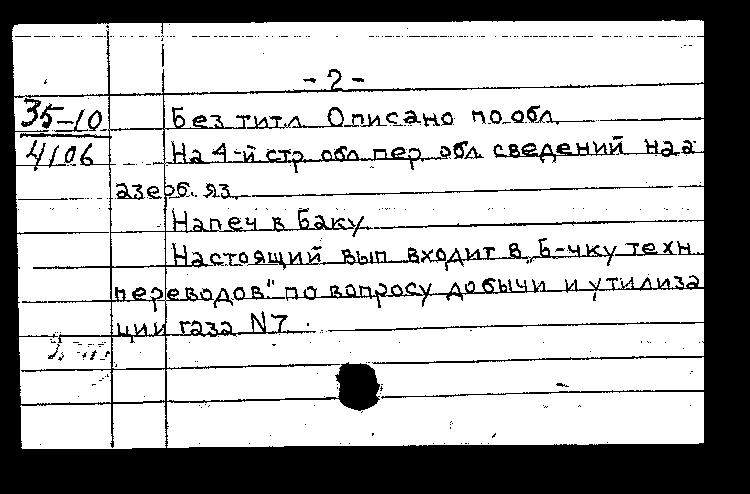 - 2 -
35-10 Без титл. Описано по обл.
4106 На 4-й стр. обл. пер. обл. сведений на а
азерб. яз.
Напеч в Баку
Настоящий вып входит в „Б-чку техн.
переводов" по вопросу добычи и утилиза
ции газа N7.